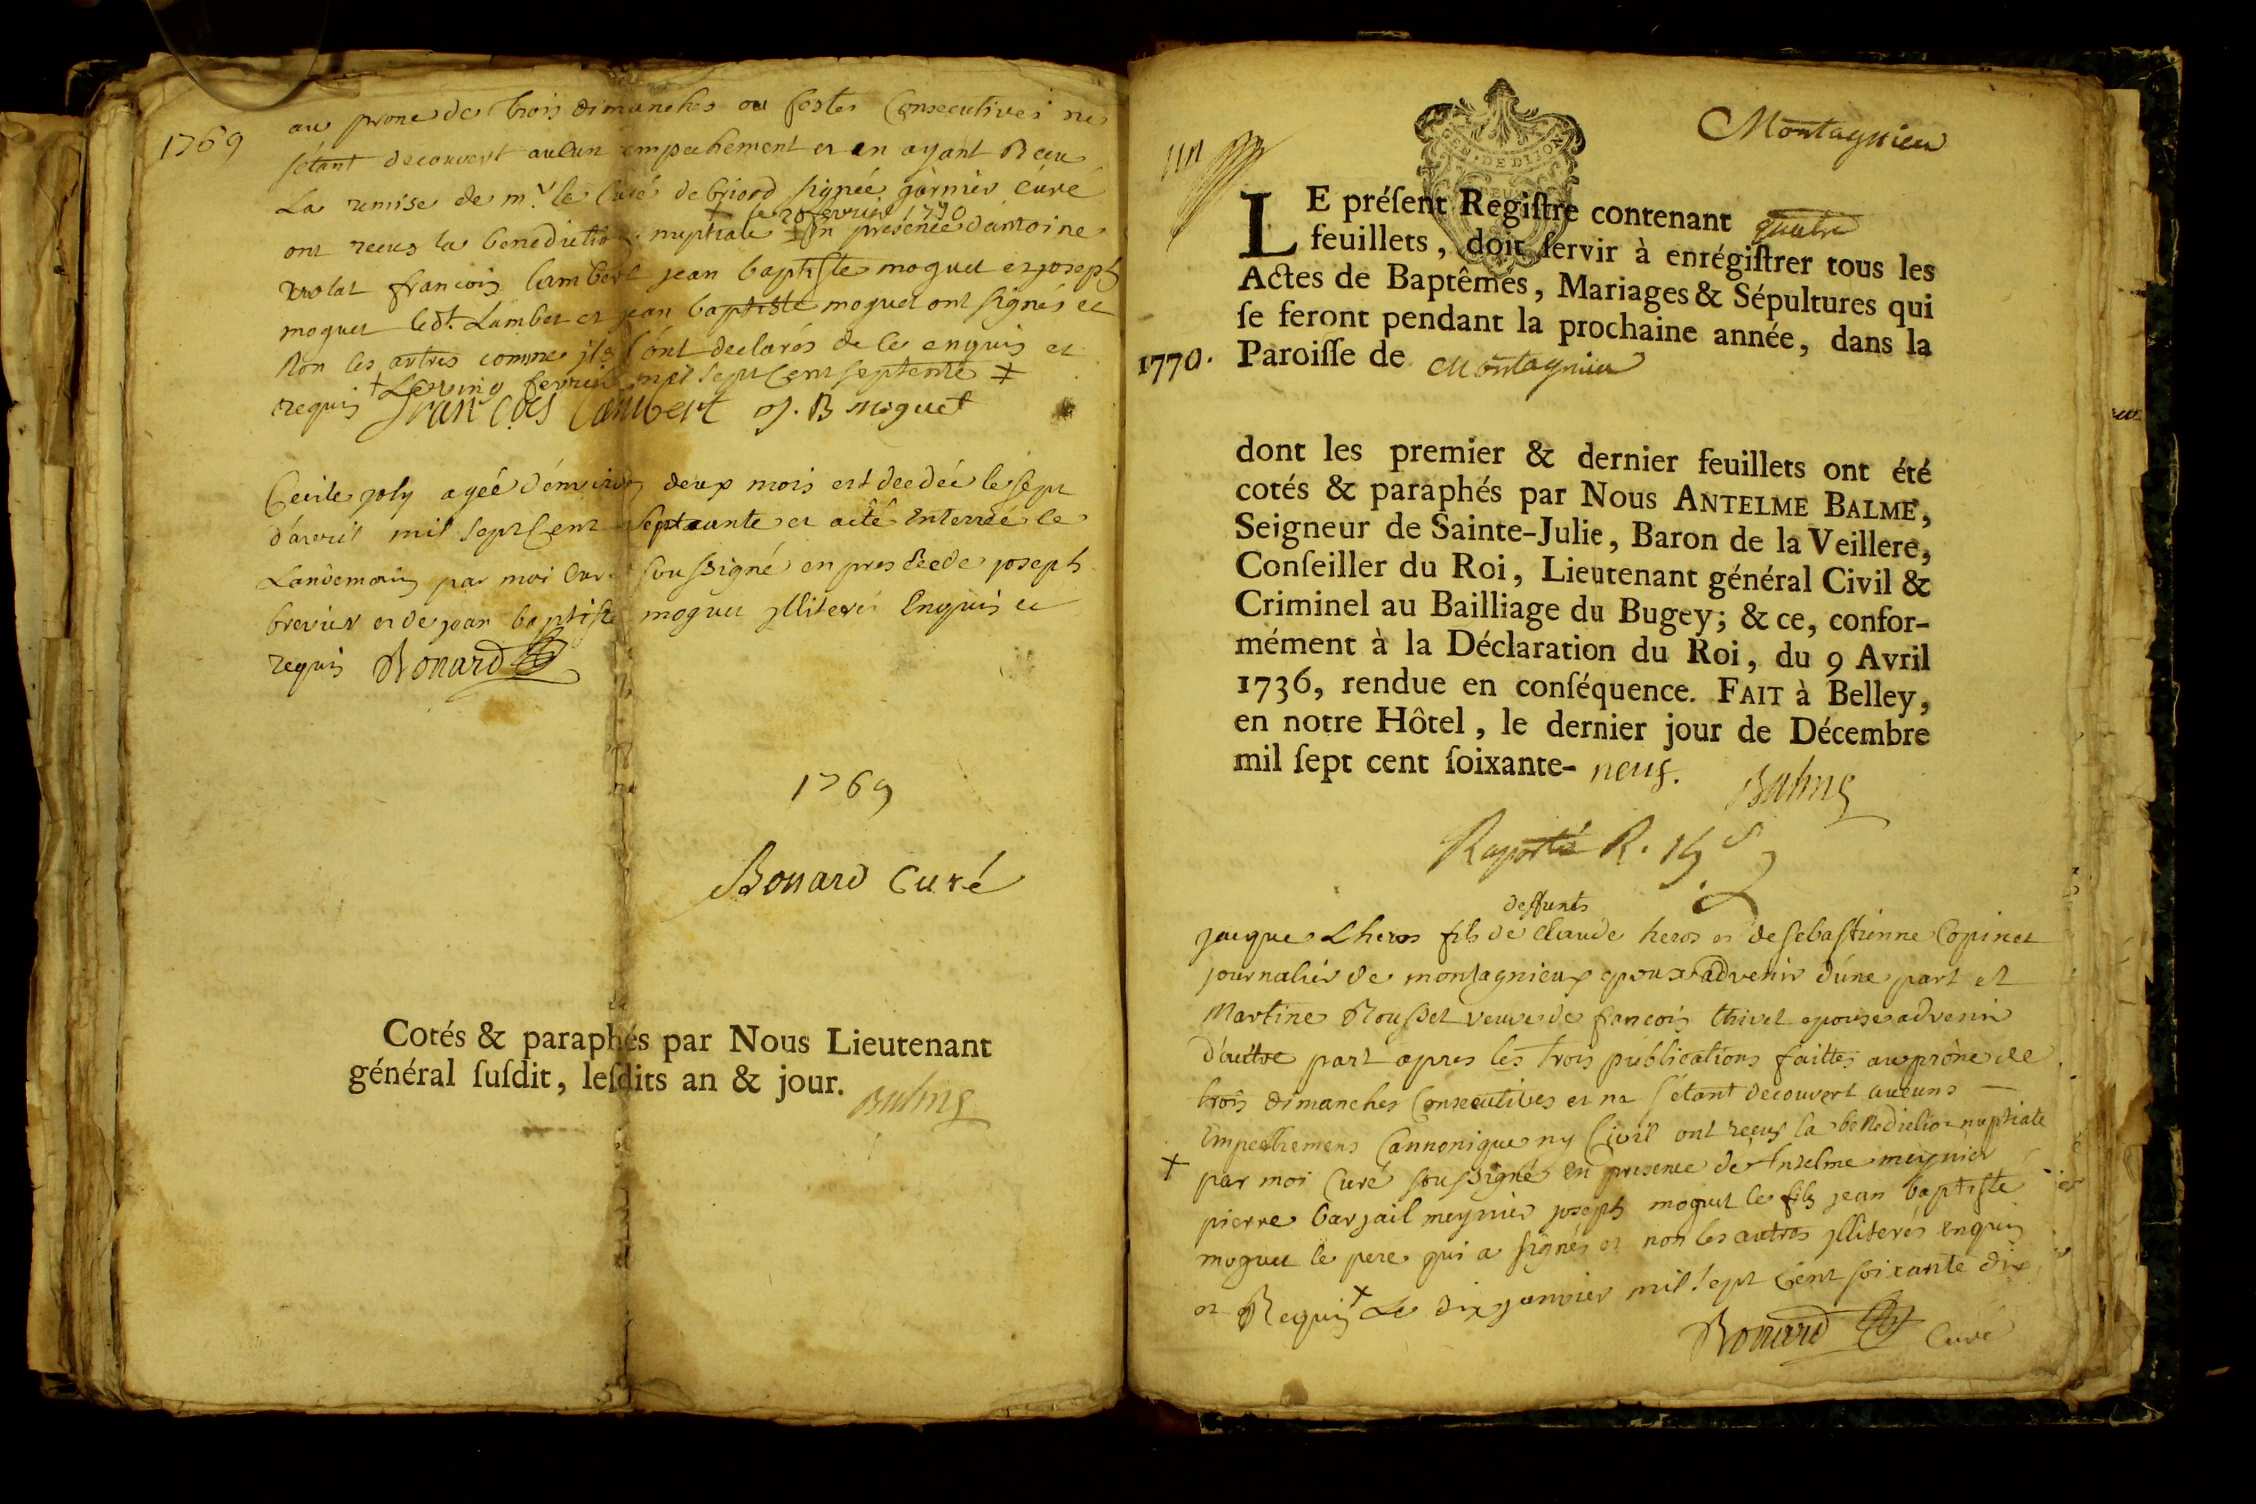 1769
au prone de trois dimanches ou festes Consecutives ne
sétant decouvert aucun empechement et en ayant Receu
La remise de mr. le Curé de briord signée garnier Curé
ont receus la benediction nuptiale ‡ en presence d'antoine
‡ le 20 fevrier 1770
françois lambert jean baptiste moguet et joseph
moguet led. Lambert et jean baptiste moguet ont signés et
Non les autres comme ils l'ont declarés de ce enquis et
requis † Le vingt fevrier mil sept Cent septente ‡
François Lambert J. B moguet
Cecile joly ageé d'environ deux mois est decedeé le sept
d'avril mil sept Cent septante et a eté Enterreé le
Landemain par moi Curé soussigné en presence de joseph
brevier et de jean baptiste moguet jlliterés Enquis et
requis Bonard
1769
Bonard Curé
Cotés & paraphés par Nous Lieutenant
général ſuſdit, leſdits an & jour.
Balme
un
Montagnieu
GEN. DE DIJON
LE préſent Regiſtre contenant quatre
feuillets, doit ſervir à enrégiſtrer tous les
Actes de Baptêmes, Mariages & Sépultures qui
ſe feront pendant la prochaine année, dans la
1770. Paroiſſe de Montagnieu
dont les premier & dernier feuillets ont été
cotés & paraphés par Nous ANTELME BALME,
Seigneur de Sainte-Julie, Baron de la Veillere,
Conſeiller du Roi, Lieutenant général Civil &
Criminel au Bailliage du Bugey; & ce, confor-
mément à la Déclaration du Roi, du 9 Avril
1736, rendue en conſéquence. FAIT à Belley,
en notre Hôtel, le dernier jour de Décembre
mil ſept cent ſoixante- neuf. Balme
Raporté R.
deffunts
jacque Lheros fils de Claude heros et de sebastienne Copinet
journalier de montagnieux epoux advenir d'une part et
Martine Rousset veuve de françois thivet epouse advenir
d'auttre part apres les trois publications faittes au prône de
trois dimanches Consecutives et ne sétant decouvert aucuns
Empechemens Cannonique ny Civil ont reçus la benediction nuptiale
† par moi Curé soussigné En presence de Antelme meynier
pierre barjail meynier joseph moguet le fils jean baptiste
moguet le pere qui a signés et non les autres jlliterés Enquis
et Requis † Le dix janvier mil sept Cent soixante dix
Bonard Curé